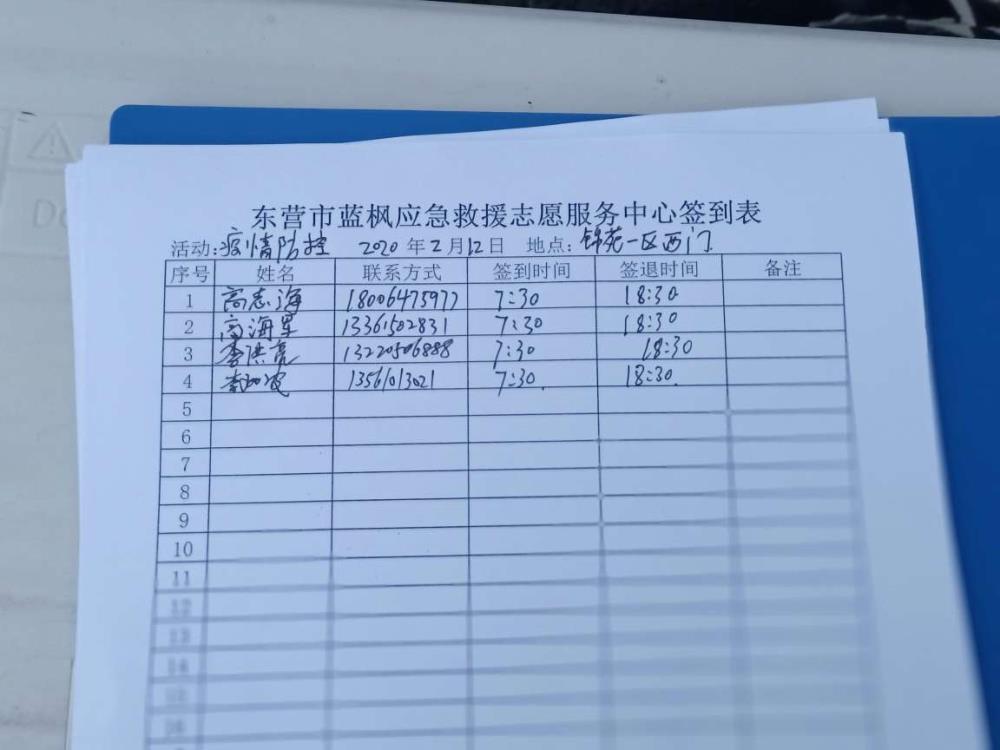 东营市蓝枫应急救援志愿服务中心签到表
活动:疫情防控 2020年2月12日 地点:锦苑一区西门
序号 姓名 联系方式 签到时间 签退时间 备注
1 高志海 18006475977 7:30 18:30
2 高海军 13361502831 7:30 18:30
3 李洪亮 13220506888 7:30 18:30
4 13561013021 7:30. 18:30.
5
6
7
8
9
10
11
12
13
14
15
16